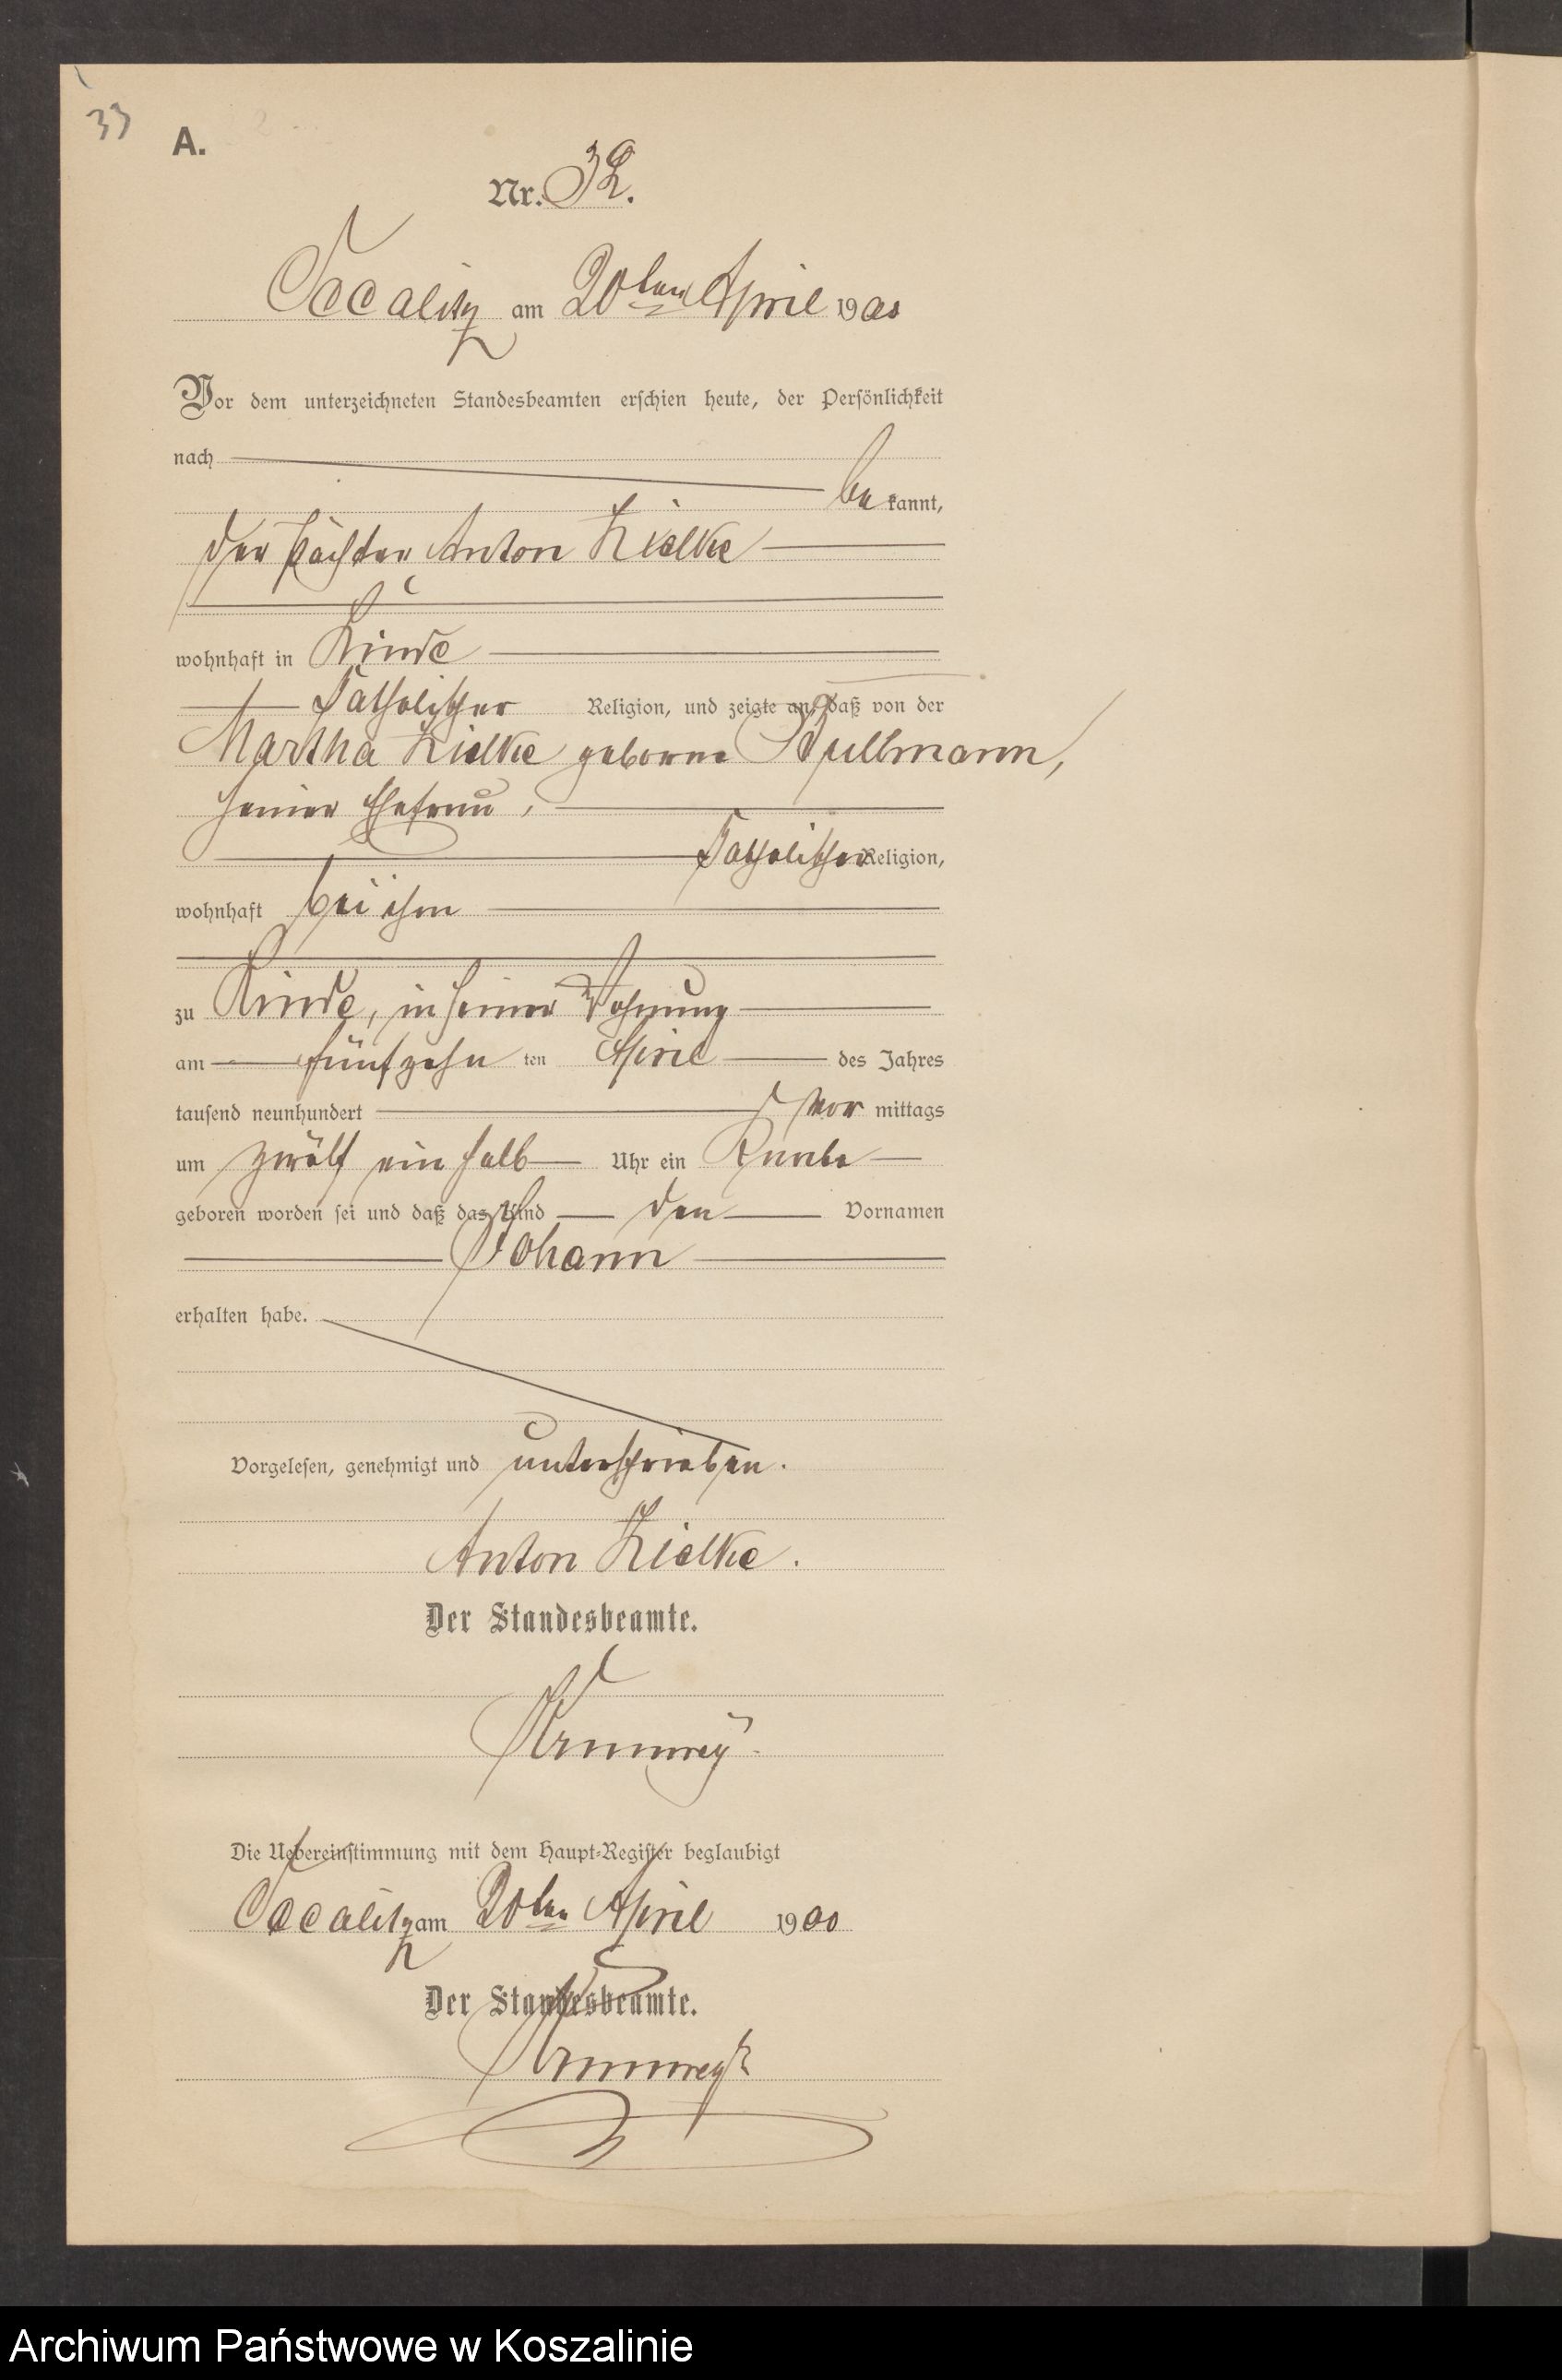 33
A.
Nr. 32.
am 20ten April 1900
Vor dem unterzeichneten Standesbeamten erschien heute, der Persönlichkeit
nach
be kannt,
der Pächter Anton Zielke
wohnhaft in Linde
katholischer Religion, und zeigte an, daß von der
Martha Zielke geborne
seiner Ehefrau,
katholischer Religion,
wohnhaft bei ihm
zu Linde, in seiner Wohnung
am fünfzehn ten April des Jahres
tausend neunhundert vor mittags
um zwölf ein halb Uhr ein Knabe
geboren worden sei und daß das Kind den Vornamen
Johann
erhalten habe.
Vorgelesen, genehmigt und unterschrieben.
Anton Zielke.
Der Standesbeamte.
Die Uebereinstimmung mit dem Haupt-Register beglaubigt
am 20ten April 1900
Der Standesbeamte.
Archiwum Państwowe w Koszalinie